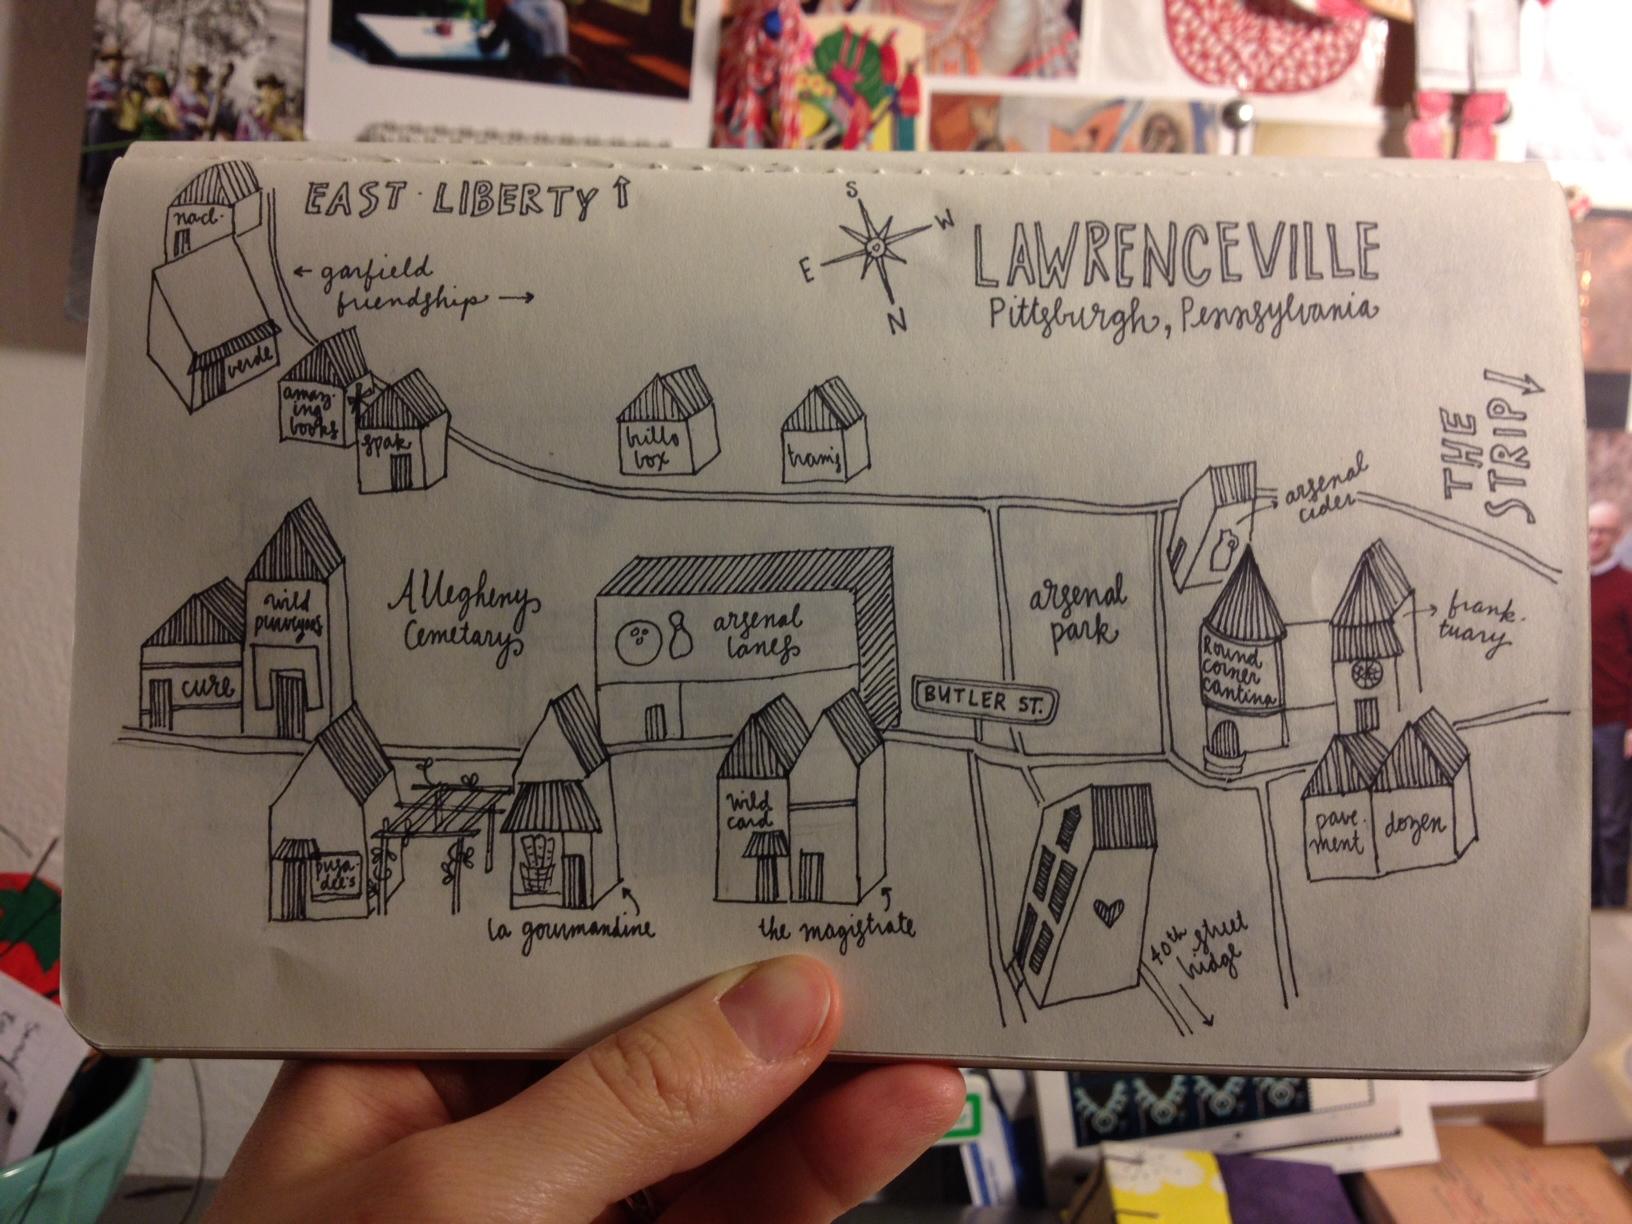 EAST · LIBERTY ↑
S
W
E
N
LAWRENCEVILLE
Pittsburgh, Pennsylvania
nacl.
← garfield
friendship →
verde
amaz-
ing
books
spak
brillo
box
tram's
THE
STRIP →
arsenal
cider
wild
purveyors
cure
Allegheny
Cemetary
arsenal
lanes
arsenal
park
BUTLER ST.
Round
corner
cantina
frank-
tuary
busa
dee's
la gourmandine
wild
card
the magistrate
40th street
bridge
pave-
ment
dozen